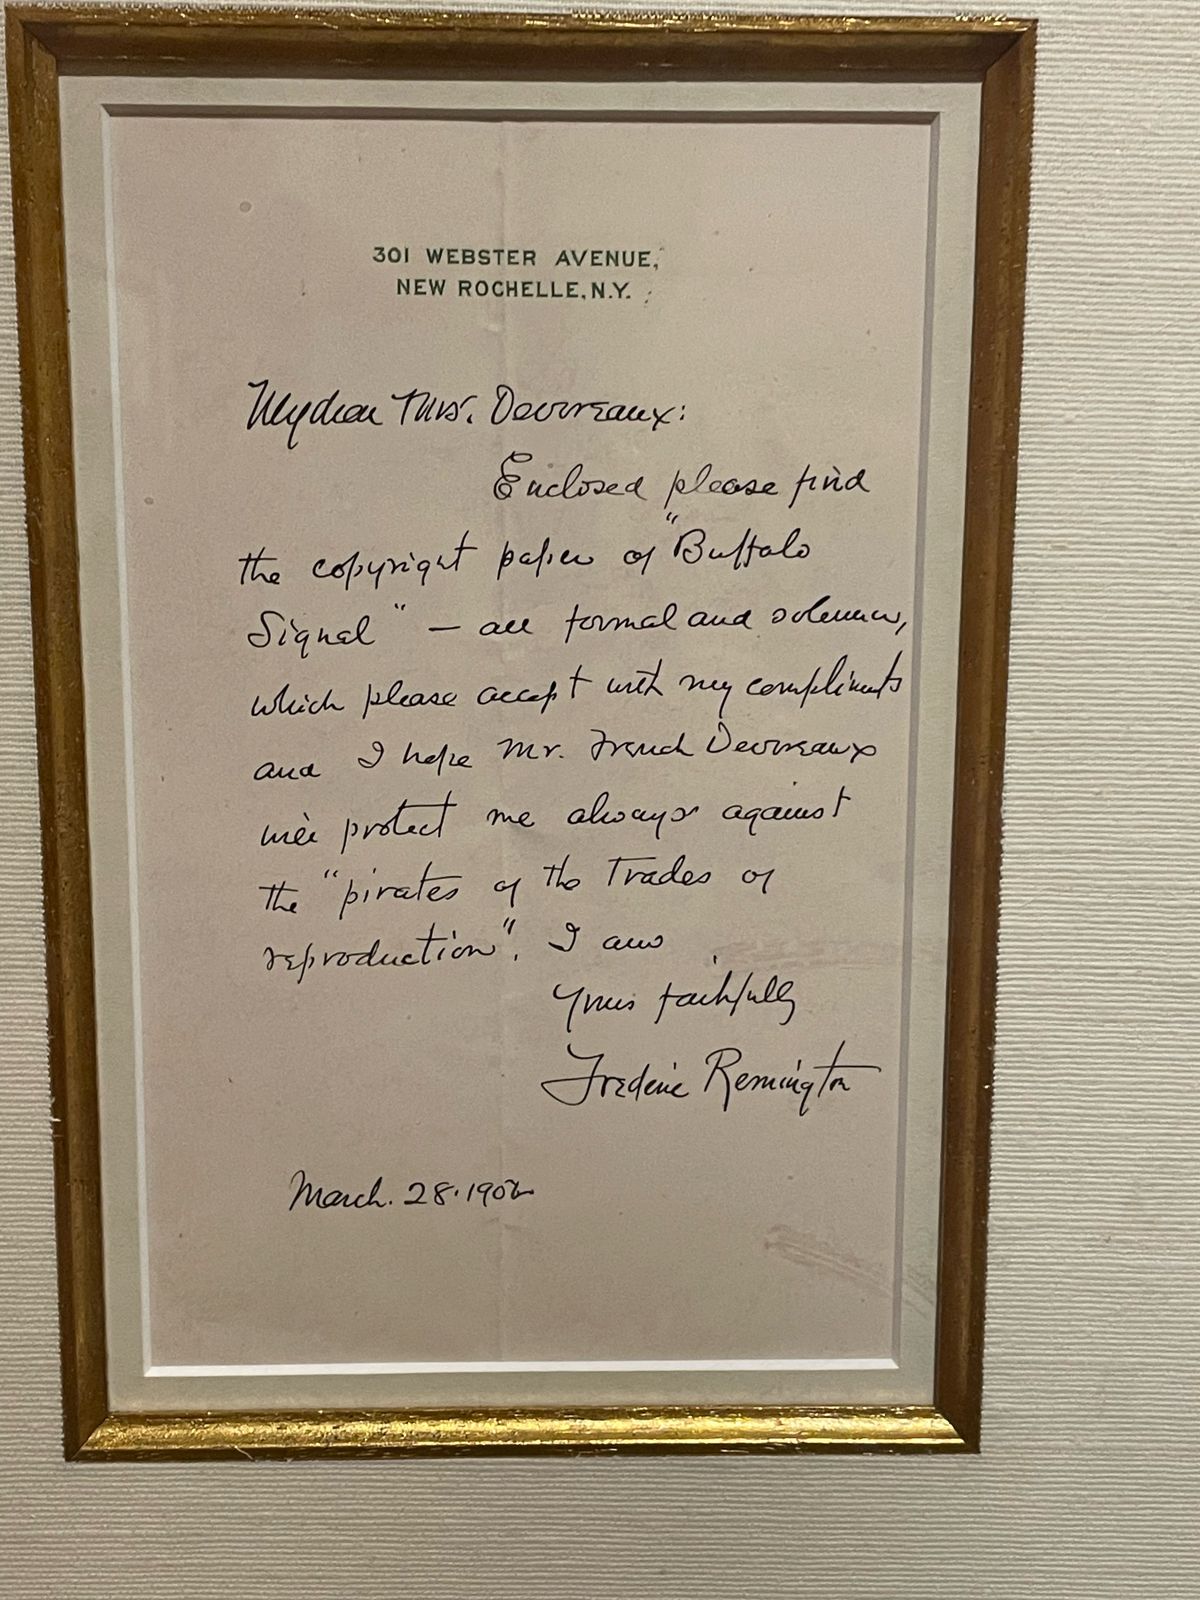 301 WEBSTER AVENUE,
NEW ROCHELLE, N.Y.
My dear Mrs. Devereaux:
Enclosed please find
the copyright paper of "Buffalo
Signal" – all formal and solemn,
which please accept with my compliments
and I hope Mr. French Devereaux
will protect me always against
the "pirates of the Trades of
reproduction". I am
Yours faithfully
Frederic Remington
March. 28. 1902